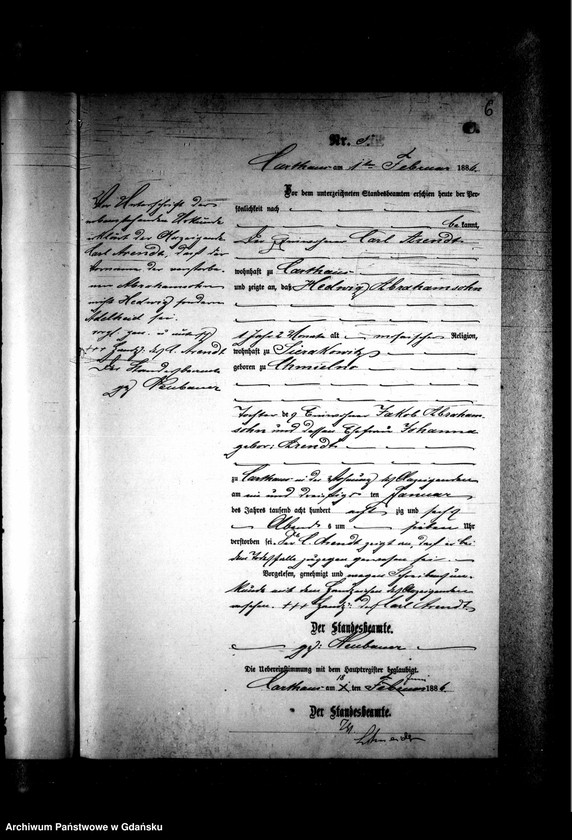 6
C.
Nr.
Carthaus am 1ten Februar 1886.
Vor dem unterzeichneten Standesbeamten erschien heute der Per-
sönlichkeit nach
be kannt,
Der Einwohner Carl Arendt
wohnhaft zu Carthaus
und zeigte an, daß Hedwig Abrahamsohn
1 Jahr 2 Monate alt mosaischer Religion,
wohnhaft zu Sierakowitz
geboren zu Chmielno
Tochter des Einwohner Jakob Abraham-
sohn und dessen Ehefrau Johanna
gebor: Arendt
zu Carthaus in der Wohnung des Anzeigenden
am ein und dreißigsten Januar
des Jahres tausend acht hundert achtzig und sechs
Abends um sieben Uhr
verstorben sei. Der C. Arendt zeigt an, daß er bei
dem Todesfalle zugegen gewesen sei.
Vorgelesen, genehmigt und wegen Schreibensun-
kunde mit dem Handzeichen des Anzeigenden
versehen. +++ Handz: des Carl Arendt
Der Standesbeamte.
gz: Neubauer
Die Uebereinstimmung mit dem Hauptregister beglaubigt.
Carthaus am 18 ten Juni 1886.
Der Standesbeamte.
Vor Unterschrift der
Urkunde
erklärt der Anzeigende
Carl Arendt, daß der
Vorname der verstorbe-
nen Abrahamsohn
nicht Hedwig sondern
Adelheid sei.
+++ Handz. des C. Arendt
Der Standesbeamte
gz Neubauer
Archiwum Państwowe w Gdańsku